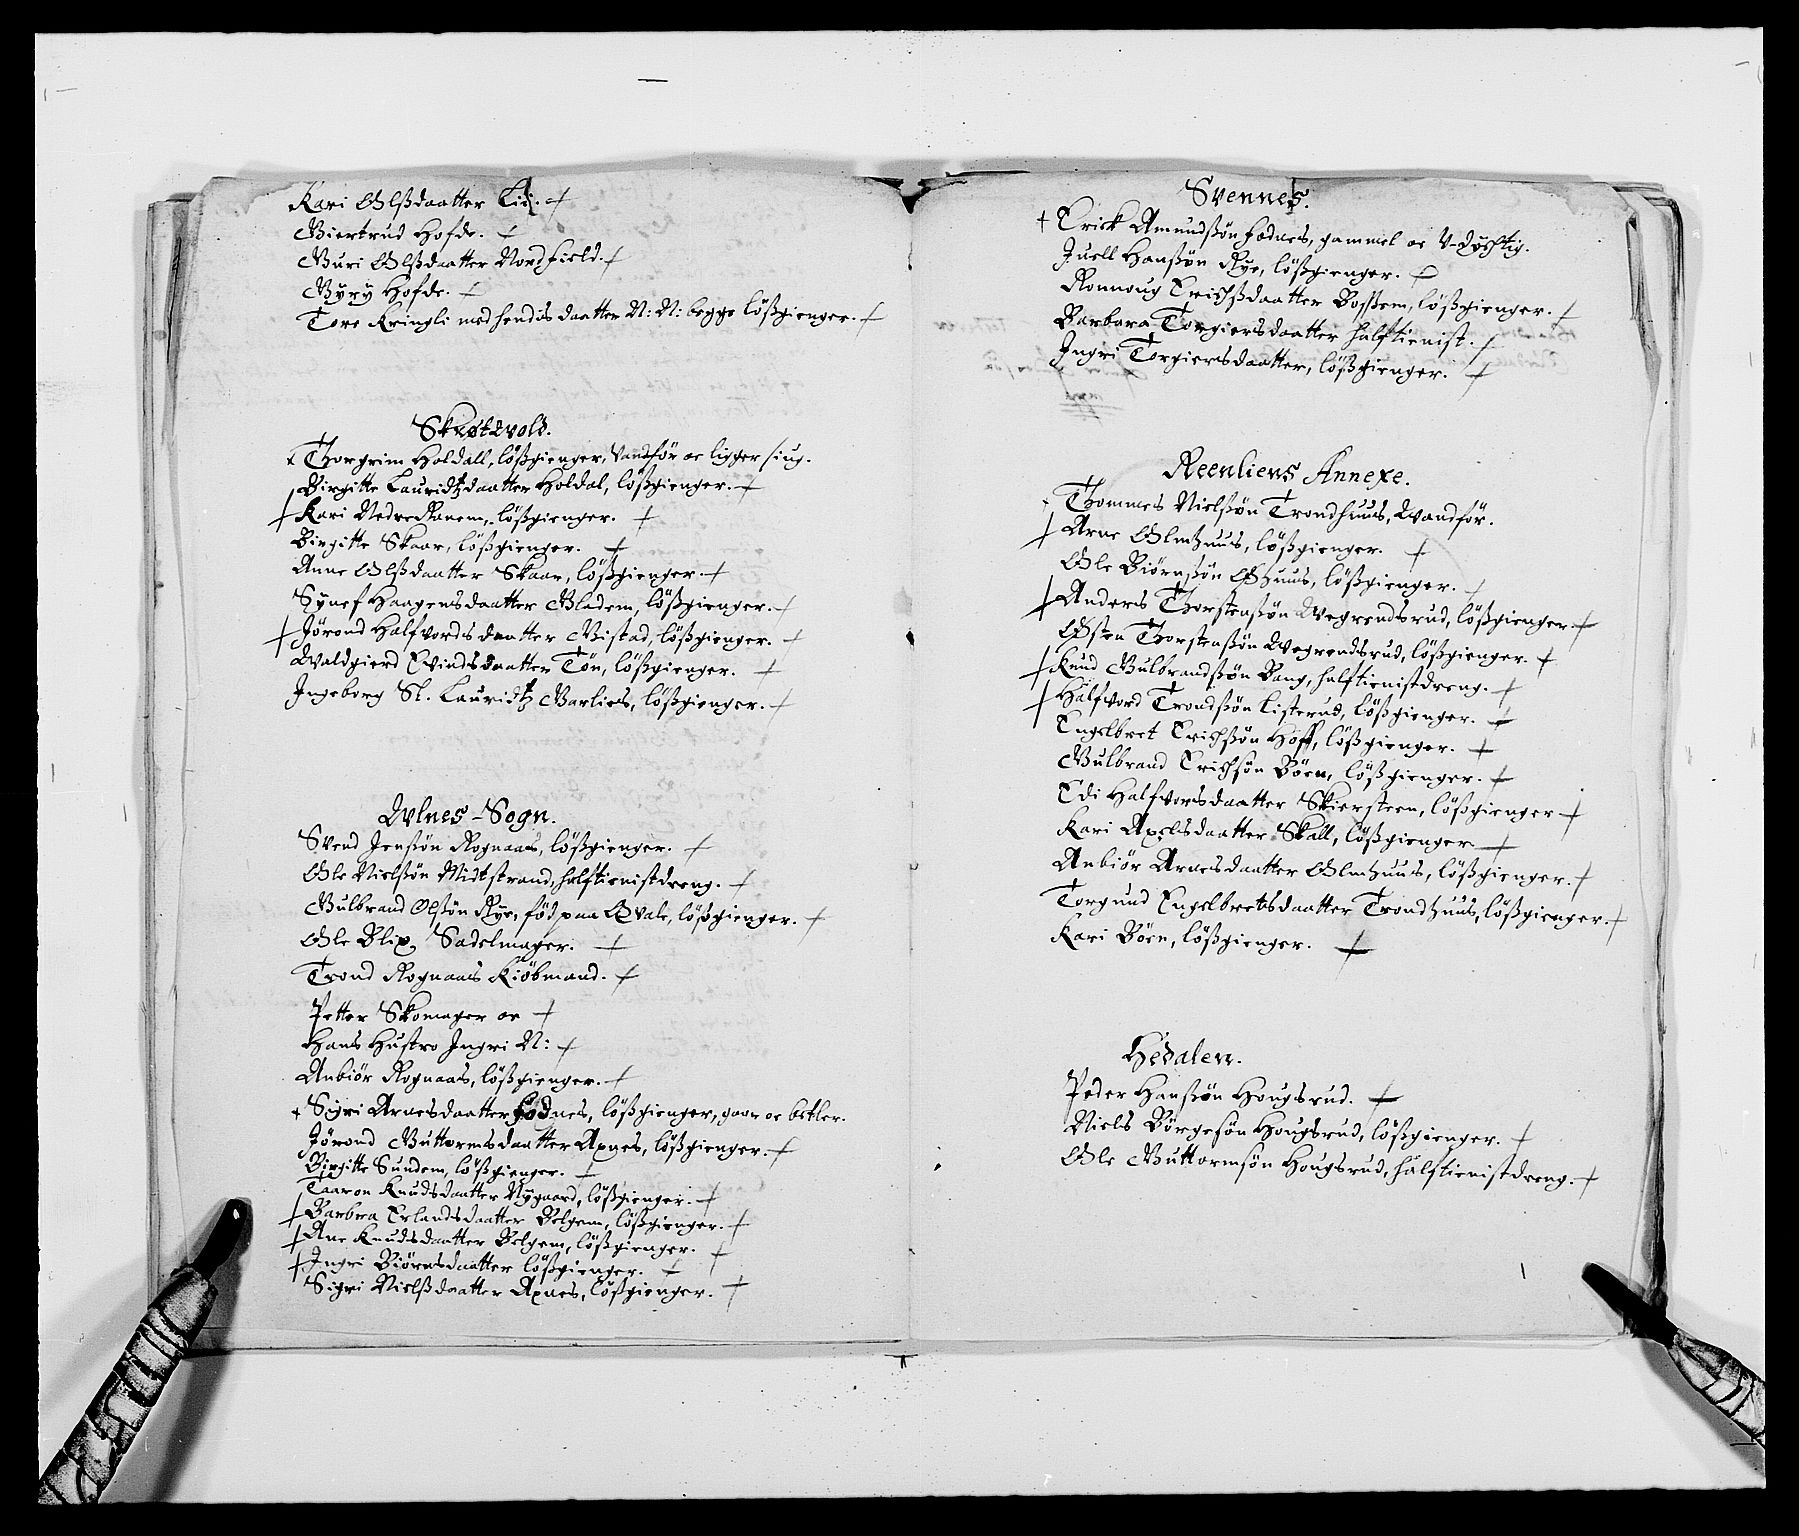 Kari Olßdaatter Lie. +
Giertrud Hofde. +
Guri Olßdaatter Nordfield. +
Gyry Hofde. +
Tore Kringli med hendis daatter N: N: begge lößgienger. +
Skrøtvold.
+ Thorgrim Holdall, lößgienger, Vandför oc ligger siug.
Birgitte Lauridtzdaatter Holdal, lößgienger. +
+ Kari Nedre Ranem, lößgienger. +
Birgitte Skaar, lößgienger. +
Anne Olßdaatter Skaar, lößgienger. +
Synef Haagensdaatter Bladem, lößgienger. +
+ Jörond Halfvordsdaatter Gistad, lößgienger. +
Waldgierd Evindsdaatter Tön, lößgienger. +
Ingeborg Sl. Lauridtz Garlies, lößgienger. +
Wlnes-Sogn.
Svend Jenßön Rognaas, lößgienger. +
Ole Nielßön Midtstrand, halftienistdreng. +
Gulbrand Olsön Rye, föd paa Qvale, lößgienger. +
Ole Blix, Sadelmager. +
Trond Rognaas Kiöbmand. +
Petter Skomager oc +
Hans Hustro Ingri N: +
Anbiör Rognaas, lößgienger. +
+ Sigri Arnesdaatter Födnes, lößgienger, gaar oc betler.
Jörond Guttormsdaatter Axnes, lößgienger. +
Birgitte Sundem, lößgienger. +
Taaron Knudsdaatter Nygaard, lößgienger. +
+ Barbra Erlandsdaatter Belgem, lößgienger. +
+ Ane Knudsdaatter Belgem, lößgienger. +
+ Ingri Biörnsdaatter lößgienger. +
Sigri Nielßdaatter Axnes, lößgienger. +
Svennes.
+ Erick Amundßön Fodnes, gammel oc V-dychtig.
Juell Hanßön Rye, lößgienger.
Ronnoug Erichßdaatter Bossem, lößgienger. +
Barbara Torgiersdaatter halftienist. +
Ingri Torgiersdaatter, lößgienger. +
Reenliens Annexe.
+ Thommes Nielßön Trondhuus, Wandför.
+ Arne Olmhuus, lößgienger. +
Ole Biörnßön Ohuus, lößgienger. +
+ Anders Thorstenßön Wegrendsrud, lößgienger. +
Östen Thorstenßön Wegrendsrud, lößgienger. +
+ Knud Gulbrandßön Bang, halftienistdreng. +
+ Halfvord Trondßön Listerud, lößgienger. +
Engelbret Erichßön Hoff, lößgienger. +
Gulbrand Erichsön Böen, lößgienger. +
Edi Halfvorsdaatter Skiersteen, lößgienger +
Kari Axelsdaatter Skall, lößgienger +
Anbiör Arnesdaatter Olmhuus, lößgienger. +
Torgund Engelbretsdaatter Trondhuus, lößgienger. +
Kari Böen, lößgienger. +
Hedalen.
Peder Hanßön Hougsrud. +
Niels Börgesön Hougsrud, lößgienger. +
Ole Guttormsön Hougsrud, halftienistdreng. +